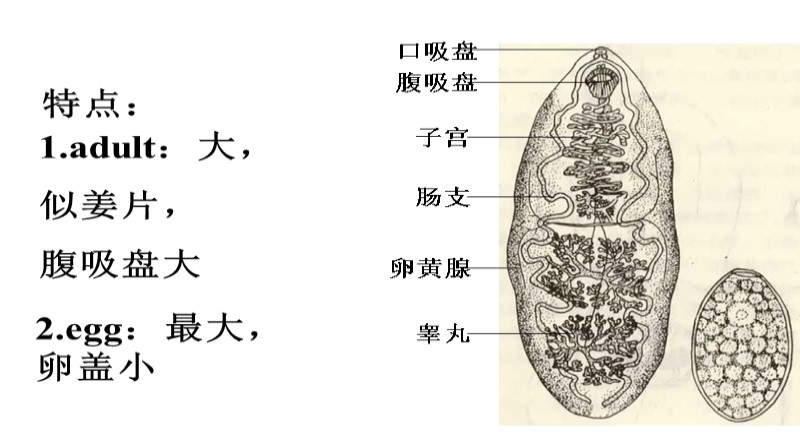 特点：
1.adult： 大，
似姜片，
腹吸盘大
2.egg： 最大，
卵盖小
口吸盘
腹吸盘
子宫
肠支
卵黄腺
睾丸